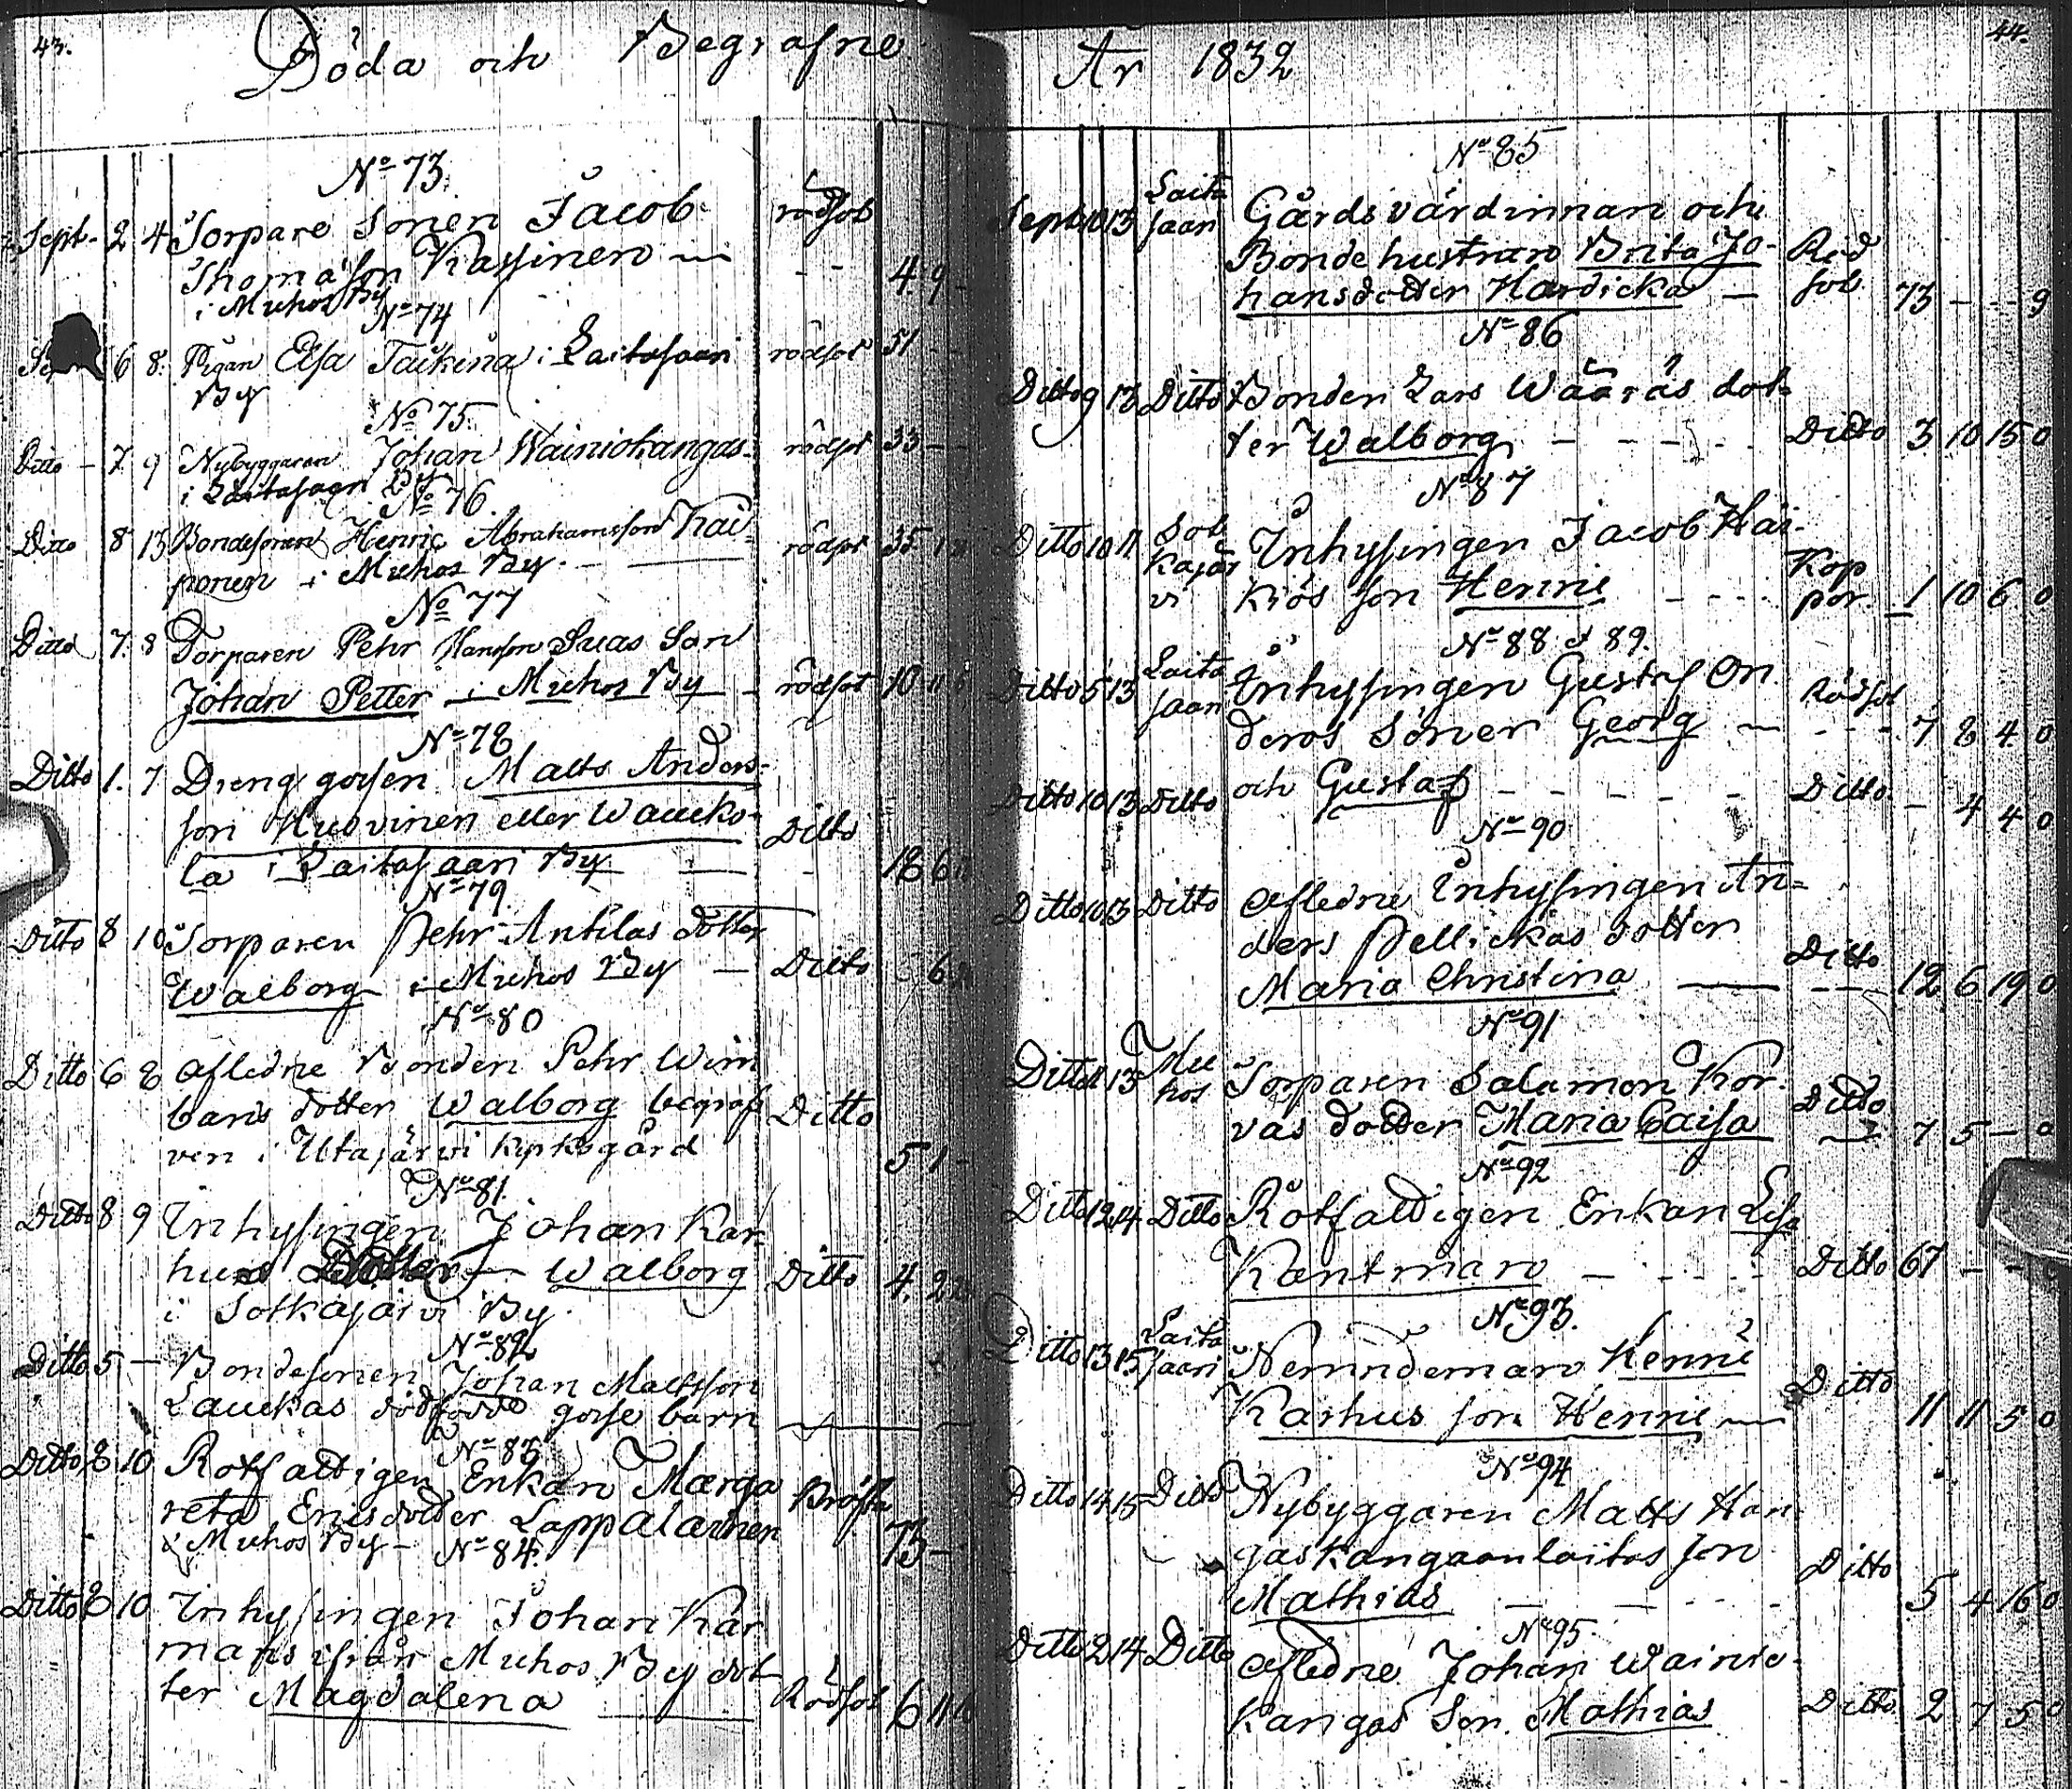 43.
Döda och Begrafne
No 73.
Sept. 2 4 Torpare Sonen Jacob rödsot
Thomasson Kassinen 4 9 -
i Muhos By
No 74
6 8. Pigan Elsa Taikina i Laitasaari rödsot 51 - -
By
No 75.
Ditto - 7. 9 Nybyggaren Johan Wainiokangas rödsot 33 - -
i Laitasaari By
No 76.
Ditto 8 13 Bondesonen Henric Abrahamsson Kai- rödsot 35
ponen i Muhos By.
No 77
Ditto 7. 8 Torparen Pehr Hansson Suas Son
Johan Petter i Muhos By rödsot 10 11
No 78
Ditto 1. 7 Dreng gossen Matts Anders-
son Huovinen eller Waucko- Ditto
la i Laitasaari By 18 6
No 79.
Ditto 8 10 Torparen Pehr Antilas dotter
Walborg i Muhos By Ditto - 6
No 80
Ditto 6 8 Afledne Bonden Pehr Wim
baris dotter Walborg begraf Ditto
ven i Utajärvi Kyrkogård 5 1 -
No 81.
Ditto 8 9 Inhysingen Johan Kar-
hus Walborg Ditto 4. 2
i Sotkajärvi By.
No 82
Ditto 5 - Bondesonen Johan Mattsson
Lauckas dödfödde gosse barn
No 83
Ditto 8 10 Rotfattigen Enkan Marga
reta Ericsdotter Lappalainen Bröst
i Muhos By - 73 -
No 84.
Ditto 8 10 Inhysingen Johan Kar
ifrån Muhos By dot
ter Magdalena Rödsot 6 11
44.
År 1832
No 85
Sept 10 13 Laita Gårdsvärdinnan och
saari Bonde hustrun Brita Jo- Röd
hansdotter Hardicka - sot. 73 - - 9
No 86
Ditto 9 13 Ditto Bonden Lars Wääräs dot-
ter Walborg Ditto 3 10 15 0
No 87
Ditto 10 11 Sot Inhysingen Jacob Häi-
kajär kiös son Henric Kop
vi por. 1 10 6 0
No 88 & 89.
Ditto 5 13 Laita Inhysingen Gustaf On Rödsot
saari deros Söner Georg 7 8 4 0
Ditto 10 13 Ditto och Gustaf Ditto - 4 4 0
No 90
Ditto 10 13 Ditto Afledne Inhysingen An-
ders Pellickas dotter
Maria Christina Ditto 12 6 19 0
No 91
Ditto 11 13 Mu Torparen Salamon Kor-
hos vas dotter Maria Caisa Ditto 7 5 - 0
No 92
Ditto 12 14 Ditto Rotfattigen Enkan Lisa
Kantman Ditto 67 - -
No 93.
Ditto 13 15 Laita Nemndeman Henric
saari Karhus son Henric Ditto 11 11 5 0
No 94
Ditto 14 15 Ditto Nybyggaren Matts Kan-
gas Kangaanlaitas son
Mathias Ditto 5 4 16 0
No 95
Ditto 2 14 Ditto Afledne Johan Wainio-
kangas Son Mathias Ditto 2 7 5